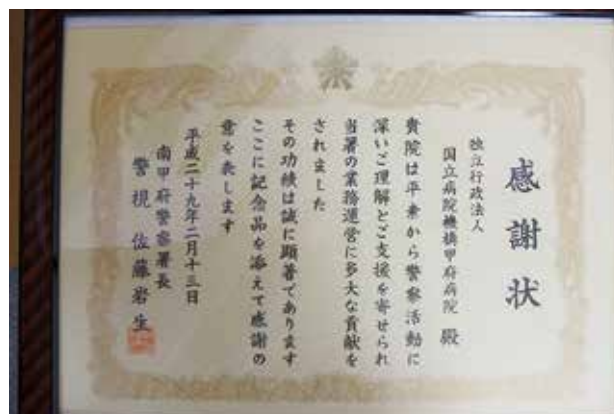 感謝状
独立行政法人
国立病院機構甲府病院 殿
貴院は平素から警察活動に
深いご理解とご支援を寄せられ
当署の業務運営に多大な貢献を
されました
その功績は誠に顕著であります
ここに記念品を添えて感謝の
意を表します
平成二十九年二月十三日
南甲府警察署長
警視 佐藤岩生